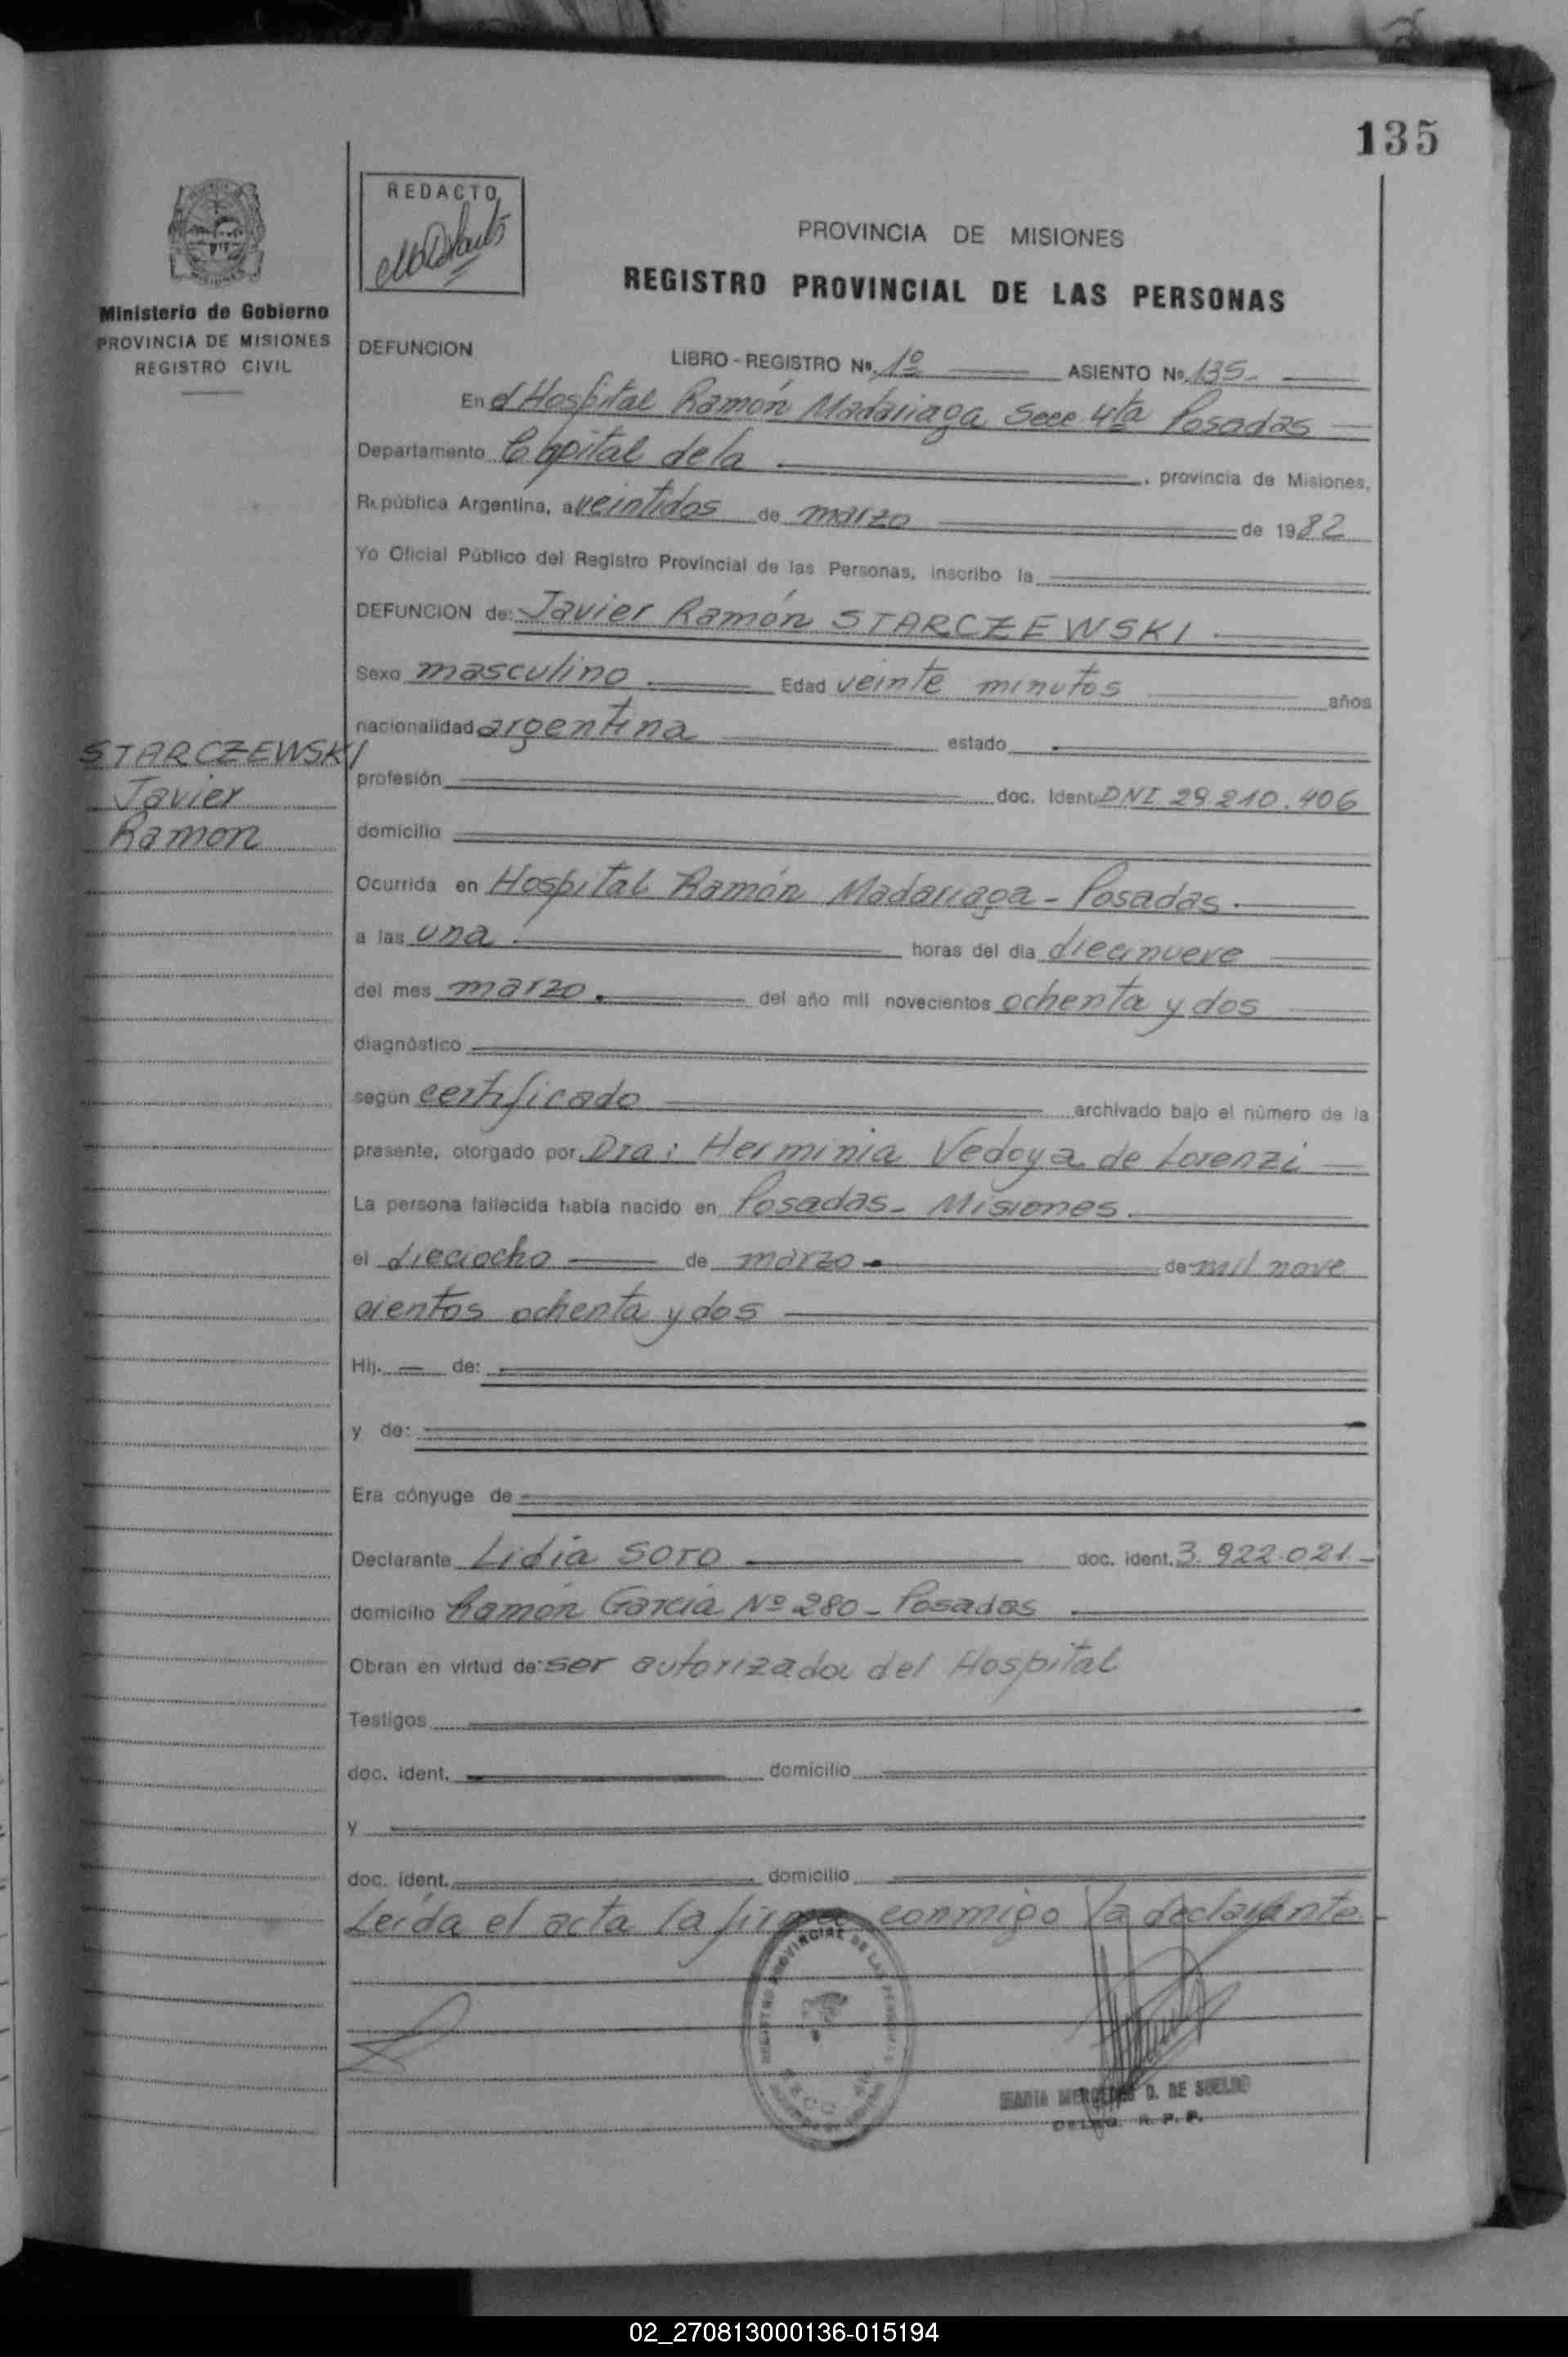 135
REDACTO
PROVINCIA DE MISIONES
REGISTRO PROVINCIAL DE LAS PERSONAS
Ministerio de Gobierno
PROVINCIA DE MISIONES
REGISTRO CIVIL
DEFUNCION
LIBRO - REGISTRO Nº. 1º ASIENTO Nº 135-
En el Hospital Ramón Madariaga Secc 4ta Posadas
Departamento Capital de la , provincia de Misiones,
República Argentina, a veintidos de marzo de 1982
Yo Oficial Público del Registro Provincial de las Personas, inscribo la
DEFUNCION de: Javier Ramón STARCZEWSKI
Sexo masculino Edad veinte minutos años
nacionalidad argentina estado
STARCZEWSKI
Javier
Ramon
profesión doc. Ident. DNI 29.210.406
domicilio
Ocurrida en Hospital Ramón Madariaga - Posadas.
a las una horas del día diecinueve
del mes marzo. del año mil novecientos ochenta y dos
diagnóstico
según certificado archivado bajo el número de la
presente, otorgado por Dra: Herminia Vedoya de Lorenzi
La persona fallecida había nacido en Posadas - Misiones.
el dieciocho de marzo de mil nove
cientos ochenta y dos
Hij. de:
y de:
Era cónyuge de
Declarante Lidia SOTO doc. ident. 3.922.021-
domicilio Ramón García Nº 280 - Posadas
Obran en virtud de: ser autorizada del Hospital
Testigos
doc. ident. domicilio
y
doc. ident. domicilio
Leída el acta la firma conmigo la declarante
REGISTRO PROVINCIAL DE LAS PERSONAS
MARIA MERCEDES D. DE SUELDO
DELEG. R. P. P.
02_270813000136-015194